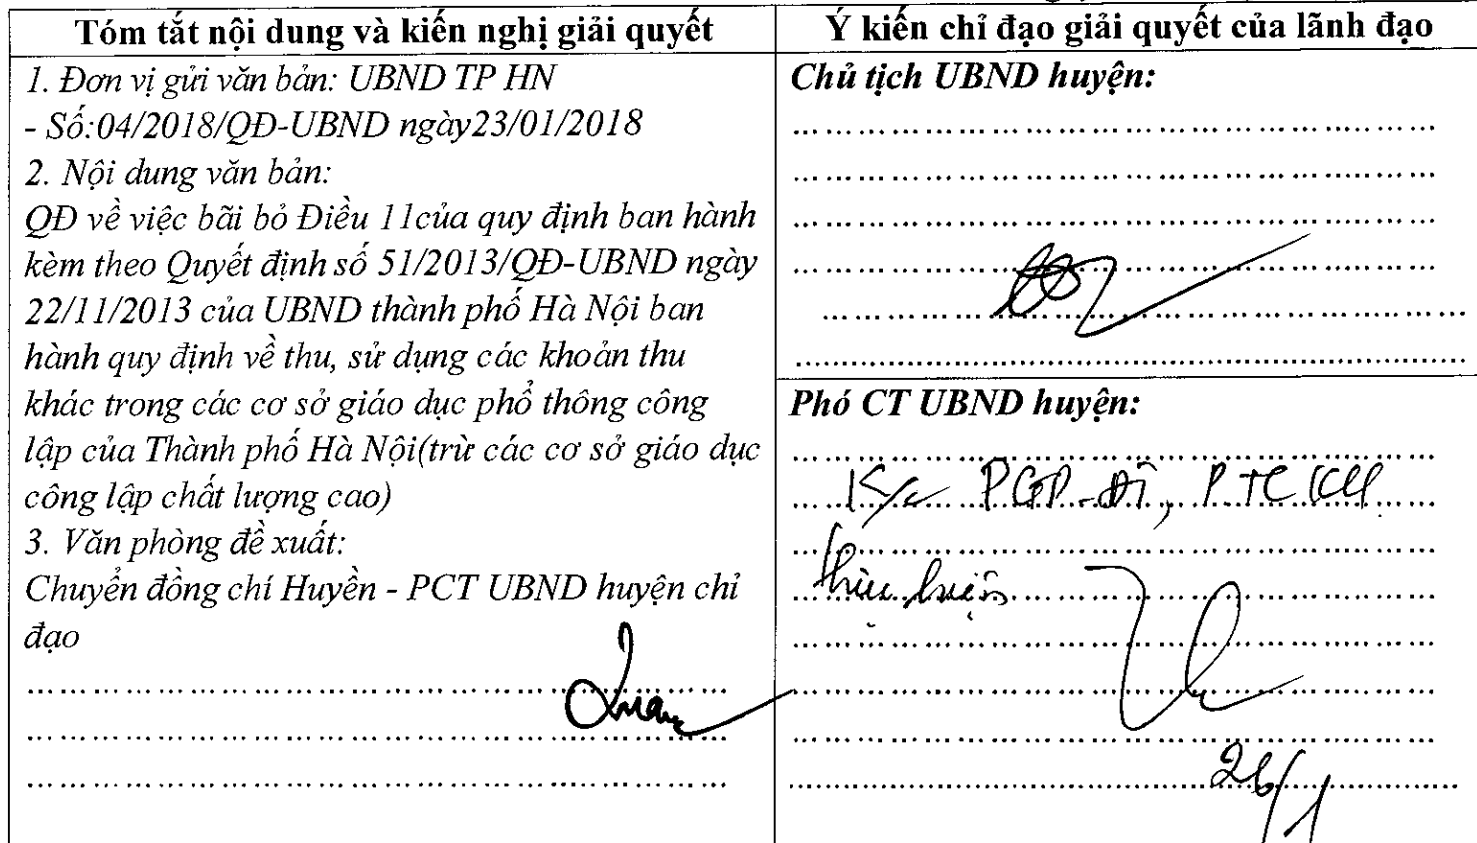 Tóm tắt nội dung và kiến nghị giải quyết
1. Đơn vị gửi văn bản: UBND TP HN
- Số:04/2018/QĐ-UBND ngày23/01/2018
2. Nội dung văn bản:
QĐ về việc bãi bỏ Điều 11của quy định ban hành
kèm theo Quyết định số 51/2013/QĐ-UBND ngày
22/11/2013 của UBND thành phố Hà Nội ban
hành quy định về thu, sử dụng các khoản thu
khác trong các cơ sở giáo dục phổ thông công
lập của Thành phố Hà Nội(trừ các cơ sở giáo dục
công lập chất lượng cao)
3. Văn phòng đề xuất:
Chuyển đồng chí Huyền - PCT UBND huyện chỉ
đạo
Ý kiến chỉ đạo giải quyết của lãnh đạo
Chủ tịch UBND huyện:
Phó CT UBND huyện:
K/c PGD-ĐT, P.TCKH
thực hiện
26/1